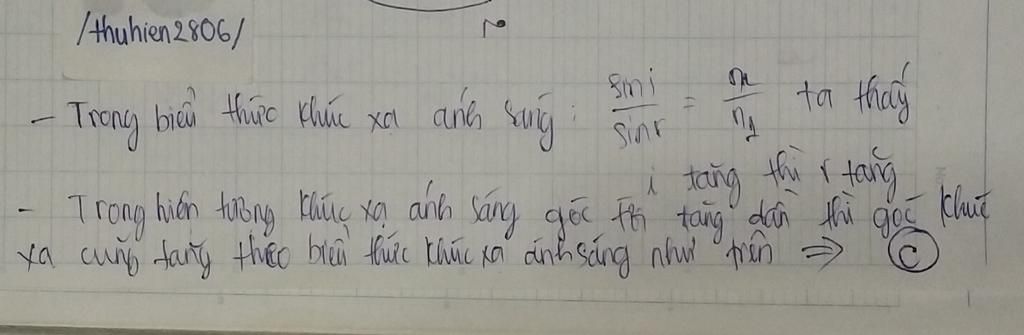 /thuhien2806/
- Trong biểu thức khúc xạ ánh sáng: sini/sinr = n2/n1 ta thấy
i tăng thì r tăng
- Trong hiện tượng khúc xạ ánh sáng góc tới tăng dần thì góc khúc
xạ cũng tăng theo biểu thức khúc xạ ánh sáng như trên ⇒ C